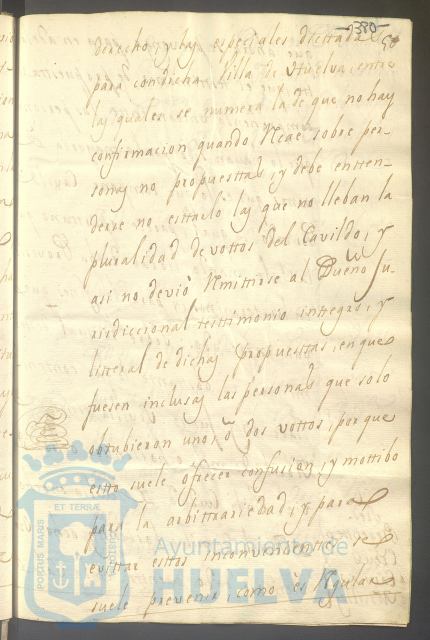 1380
50
derecho, y las especiales dictadas
para con dicha Villa de Huelva, entre
las quales se numera la de que no hay
confirmacion quando Recae sobre per-
sonas no propuesttas, y debe entten-
derse no esttarlo las que no lleban la
pluralidad de vottos del Cavildo, y
asi no, devio Remitirse al Dueño Ju-
risdiccional testtimonio integro, y
litteral de dichas propuesttas, en que
fuesen inclusas las personas que solo
obtubieron uno, ô dos vottos, porque
estto suele ofrecer confusion, y mottibo
para la arbittrariedad, y para
evittar esttos inconvenientes se
suele prevenir, como es Regular
PORTUS MARIS
ET TERRÆ
CUSTODIA
Ayuntamiento de
HUELVA